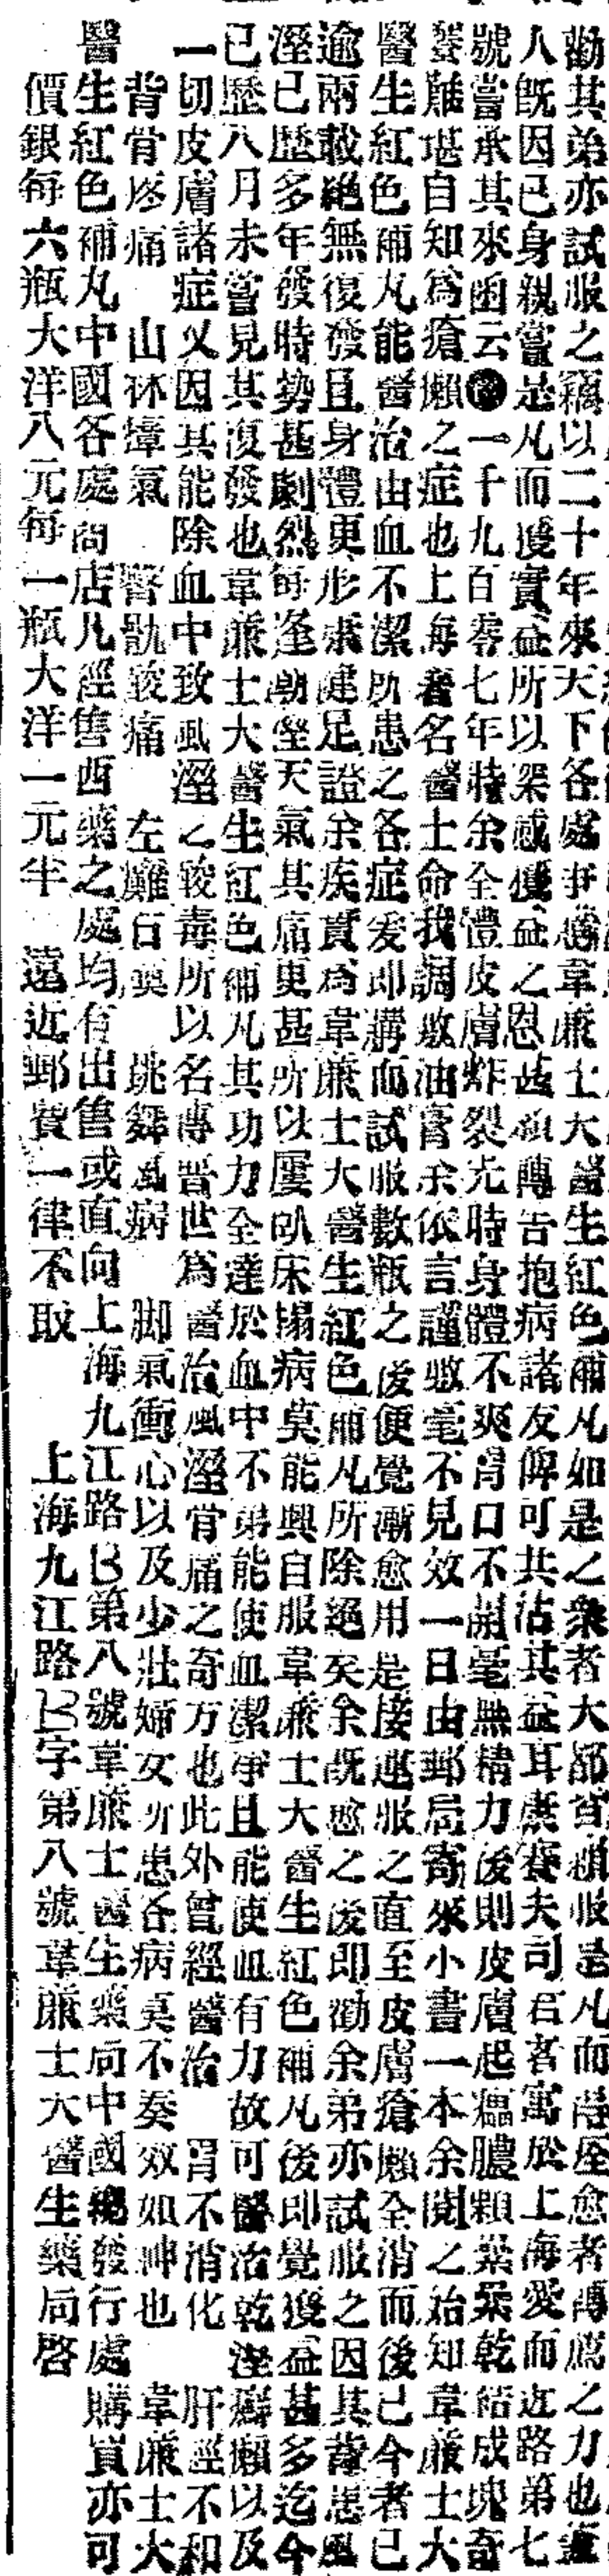 勸其弟亦試服之竊以二十年來天下各處手患韋廉士大醫生紅色補丸如是之衆者大都皆賴服是丸而得痊愈者轉薦之力也
人旣因已身親嘗是丸而獲實益所以深感獲益之恩甚願轉告抱病諸友俾可共沾其益耳康賽夫司君者寓於上海愛而近路第七
號嘗承其來函云一千九百零七年特余全體皮膚炸裂尤時身體不爽胃口不開毫無精力後則皮膚起瘟膿顆纍纍乾結成塊奇
癢難堪自知爲瘡癩之症也上海著名醫士命我調敷油膏余依言謹敷毫不見效一日由郵局寄來小書一本余閱之始知韋廉士大
醫生紅色補丸能醫治由血不潔所患之各症爰即購而試服數瓶之後便覺漸愈用是接連服之直至皮膚瘡癩全消而後已今者已
逾兩載絕無復發且身體更形康健足證余疾實爲韋廉士大醫生紅色補丸所除絕矣余旣愈之後即勸余弟亦試服之因其昔患風
溼已歷多年發時勢甚劇烈每逢潮溼天氣其痛更甚所以屢臥床榻病莫能興自服韋廉士大醫生紅色補丸後即覺獲益甚多迄今
已歷八月未嘗見其復發也韋廉士大醫生紅色補丸其功力全達於血中不第能使血潔淨且能使血有力故可醫治乾溼癬癩以及
一切皮膚諸症又因其能除血中致風溼之酸毒所以名傳晉世爲醫治風溼骨痛之奇方也此外曾經醫治 胃不消化 肝經不和
背骨疼痛 山林瘴氣 臀骩酸痛 左癱右瘓 跳舞風病 脚氣衝心以及少壯婦女所患各病莫不奏效如神也 韋廉士大
醫生紅色補丸中國各處商店凡經售西藥之處均有出售或直向上海九江路B第八號韋廉士醫生藥局中國總發行處購買亦可
價銀每六瓶大洋八元每一瓶大洋一元半 遠近郵費一律不取 上海九江路B字第八號韋廉士大醫生藥局啓